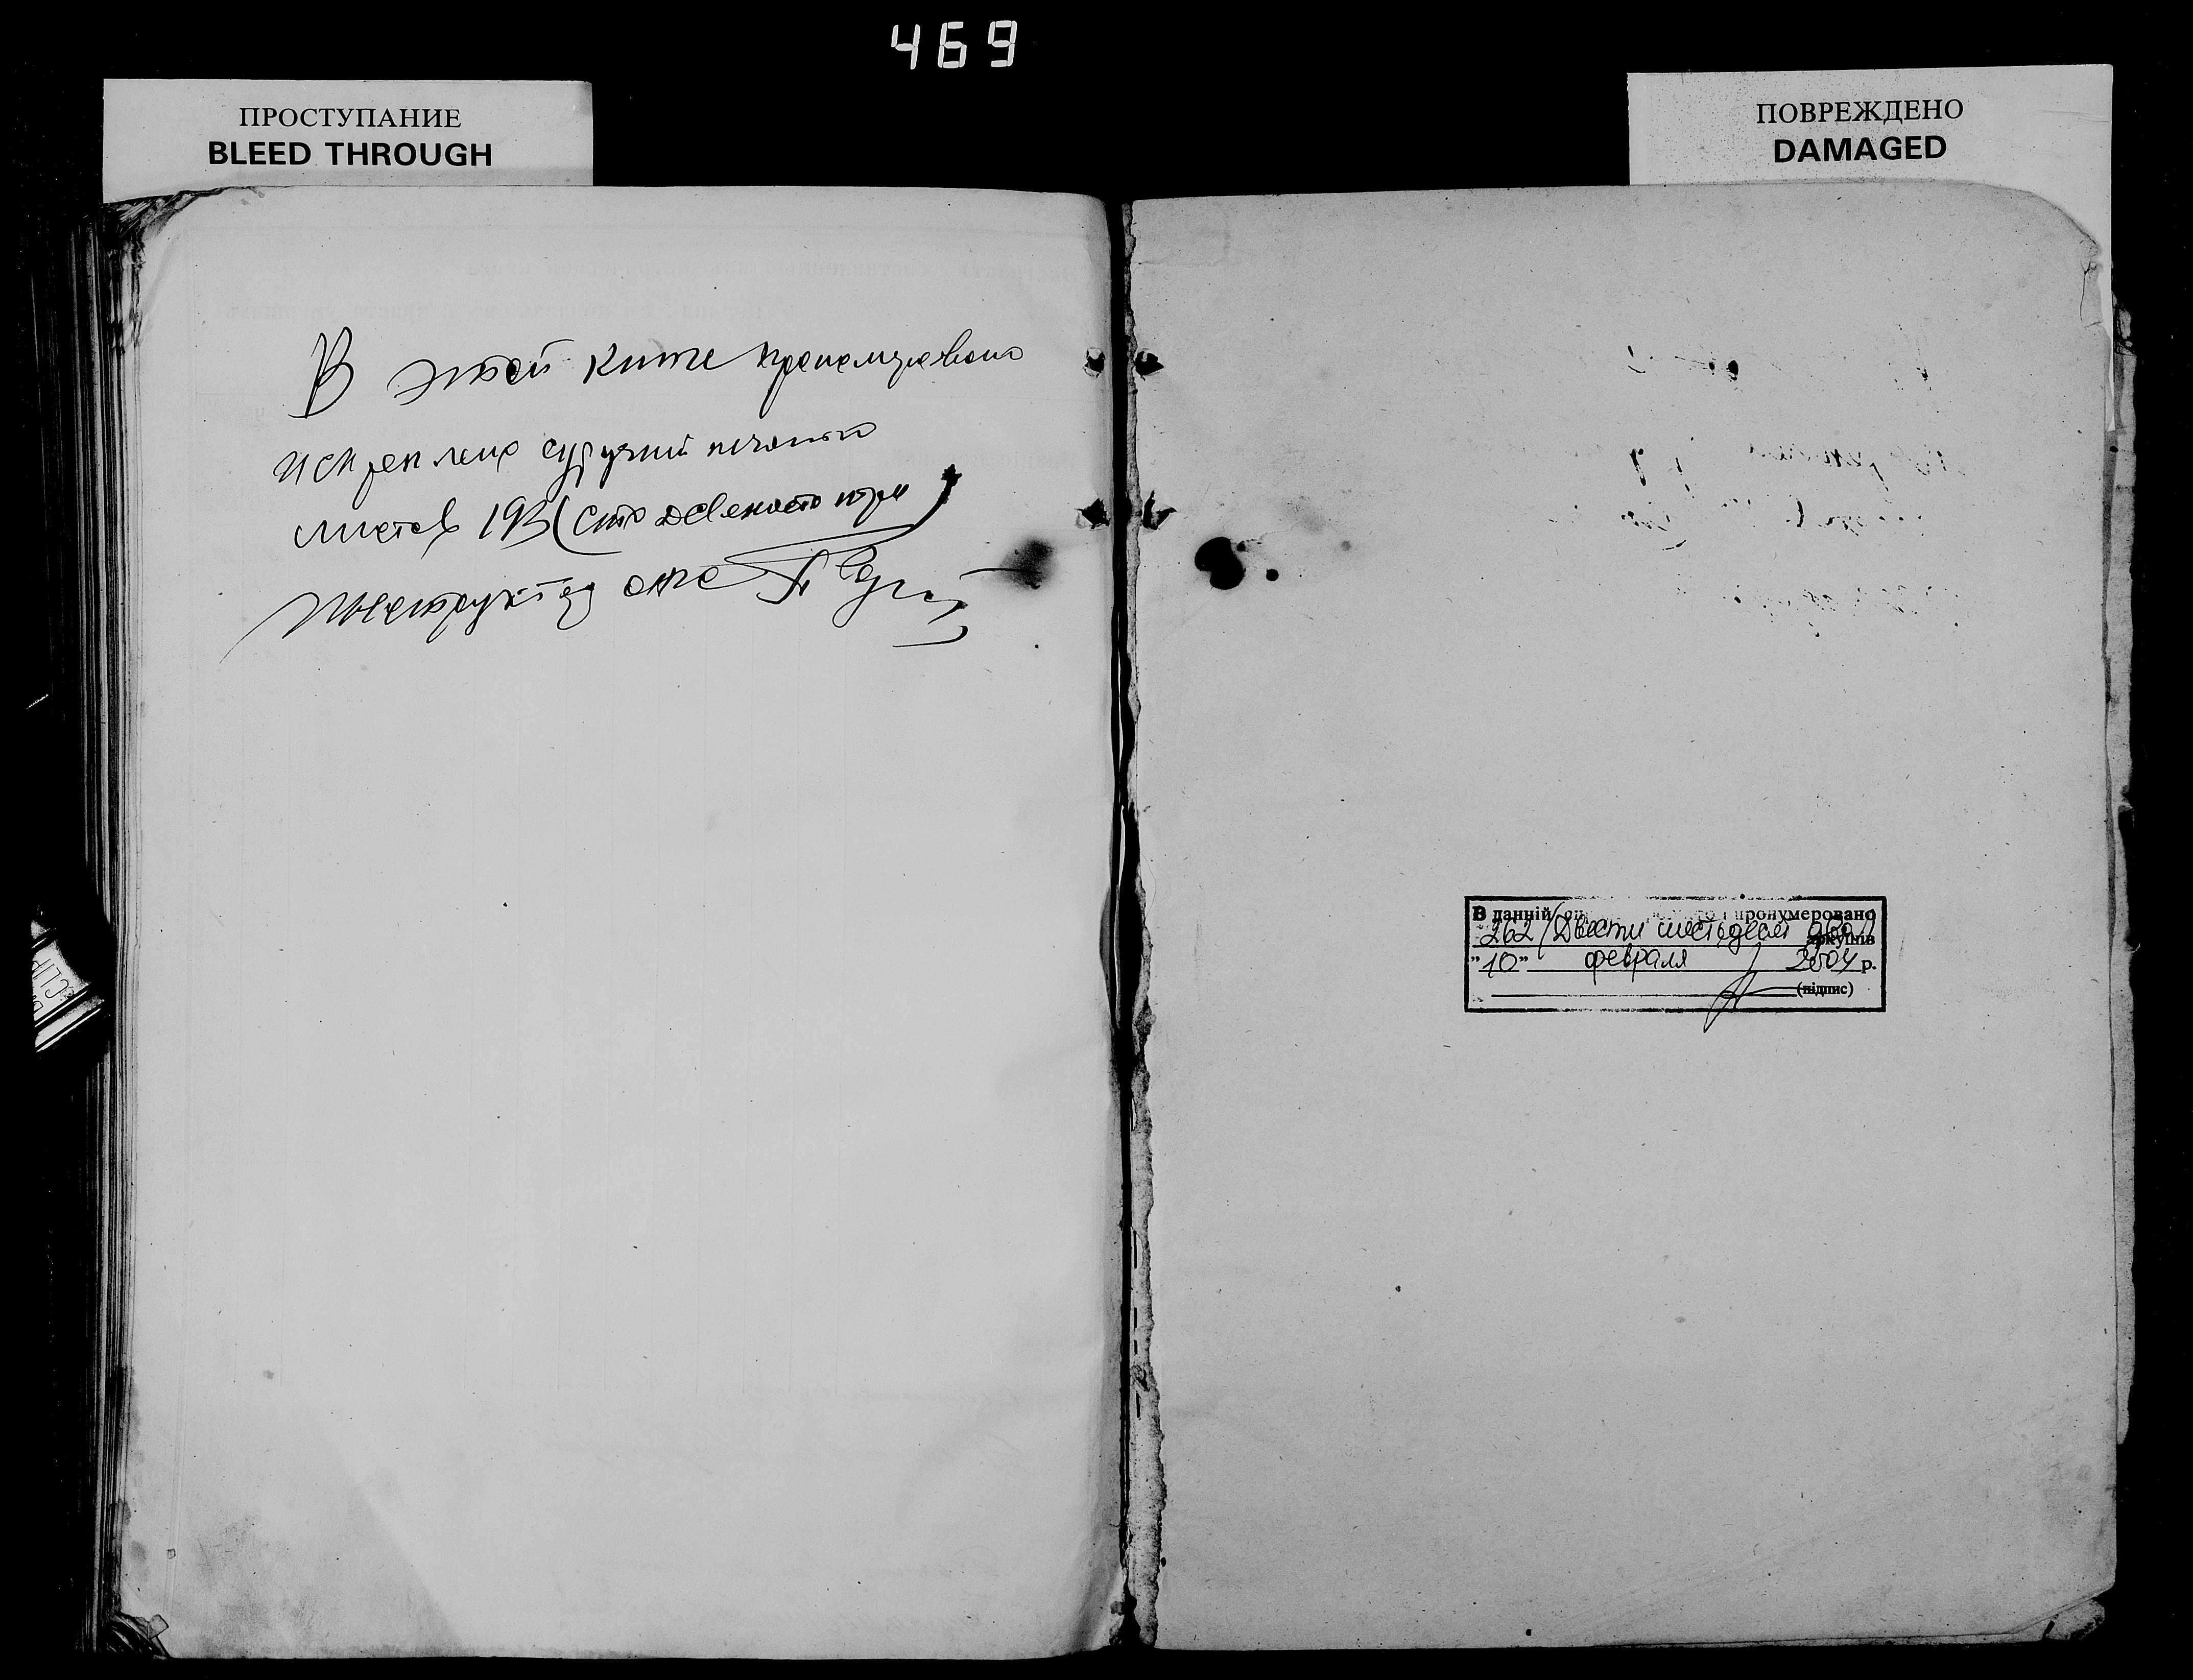 469
ПРОСТУПАНИЕ
BLEED THROUGH
ПОВРЕЖДЕНО
DAMAGED
В этой книге пронумеровано
и скреплено сургучной печатью
листов 193 (сто девяносто три)
Инструктор
В данній пронумеровано
262 (Двести шестьдесят два)
аркушів
"10" февраля 2004 р.
(підпис)